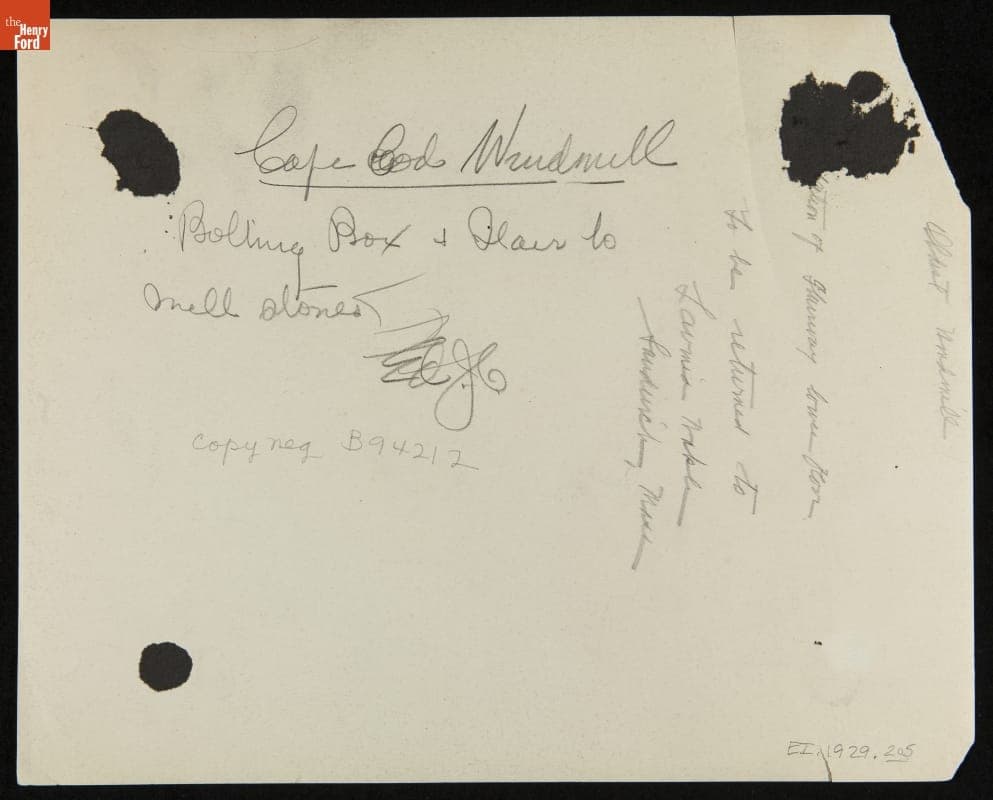 the
Henry
Ford
Cape Cod Windmill
Bolting Box & Stair to
Mill Stones
copy neg B94212
Oldest Windmill
of Stairway lower floor
To be returned to
Lavinia
Sandwich, Mass
EI.1929.205